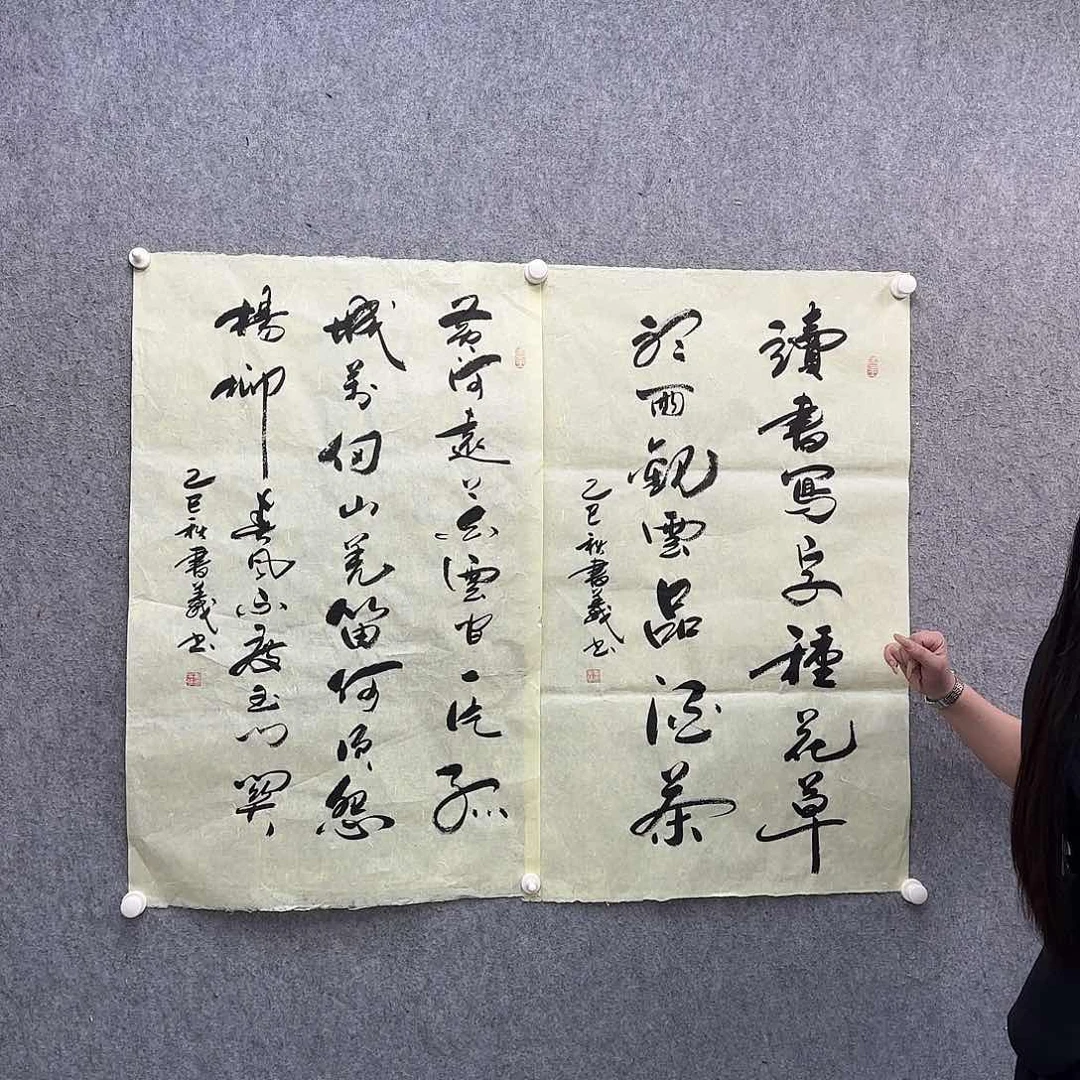 讀書寫字種花草
聽雨觀雲品酒茶
乙巳秋書義书
黃河遠上白雲間一片孤
城萬仞山羌笛何須怨
楊柳春風不度玉門關
乙巳秋書義书